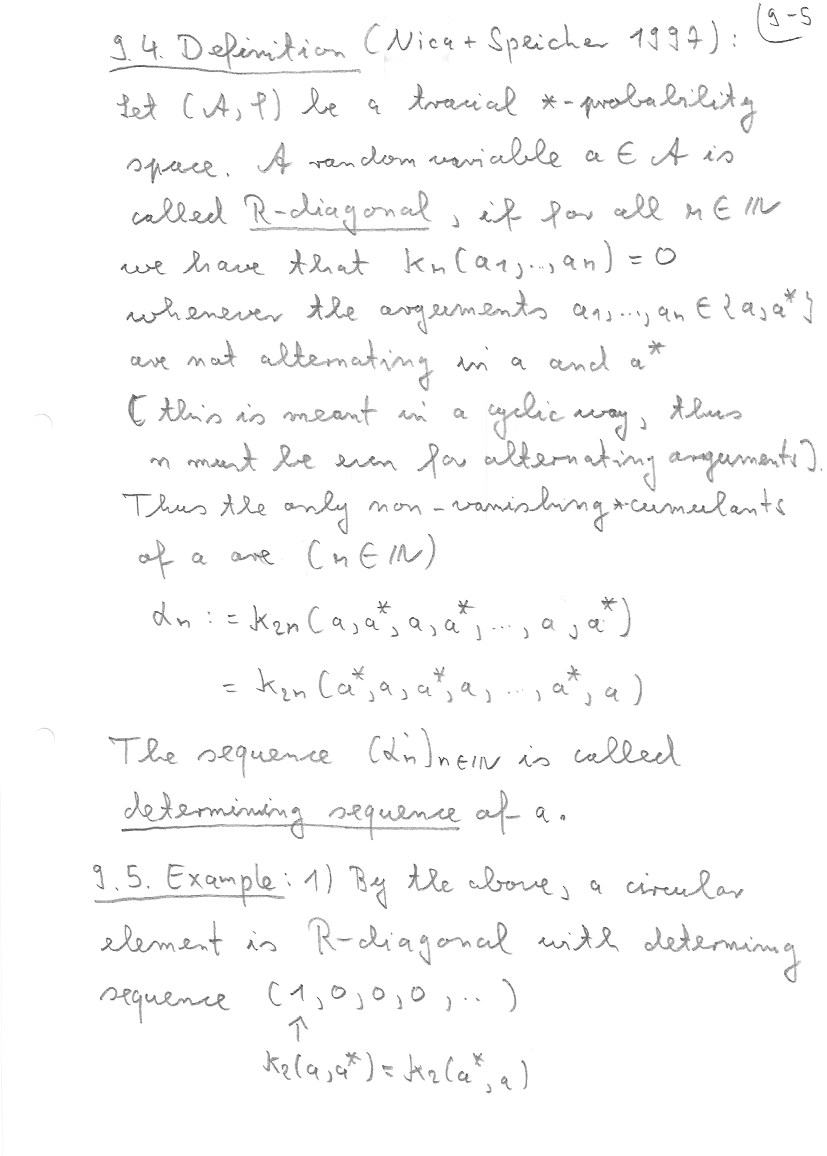 9-5
9.4. Definition (Nica + Speicher 1997):
Let (A, φ) be a tracial *-probability
space. A random variable a ∈ A is
called R-diagonal, if for all n ∈ ℕ
we have that κn(a1,..,an) = 0
whenever the arguments a1,..,an ∈ {a,a*}
are not alternating in a and a*
(this is meant in a cyclic way, thus
n must be even for alternating arguments).
Thus the only non-vanishing *-cumulants
of a are (n ∈ ℕ)
αn := κ2n(a,a*,a,a*,...,a,a*)
= κ2n(a*,a,a*,a,...,a*,a)
The sequence (αn)n∈ℕ is called
determining sequence of a.
9.5. Example: 1) By the above, a circular
element is R-diagonal with determinig
sequence (1,0,0,0,..)
↑
κ2(a,a*) = κ2(a*,a)